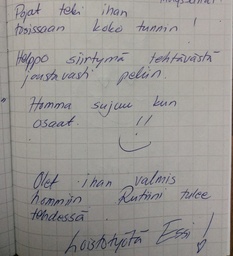 Pojat teki ihan
tosissaan koko tunnin !
Helppo siirtymä tehtävästä
joustavasti peliin.
Homma sujuu kun
osaat. !!
Olet ihan valmis
hommiin Rutiini tulee
tehdessä
Loistotyötä Essi !